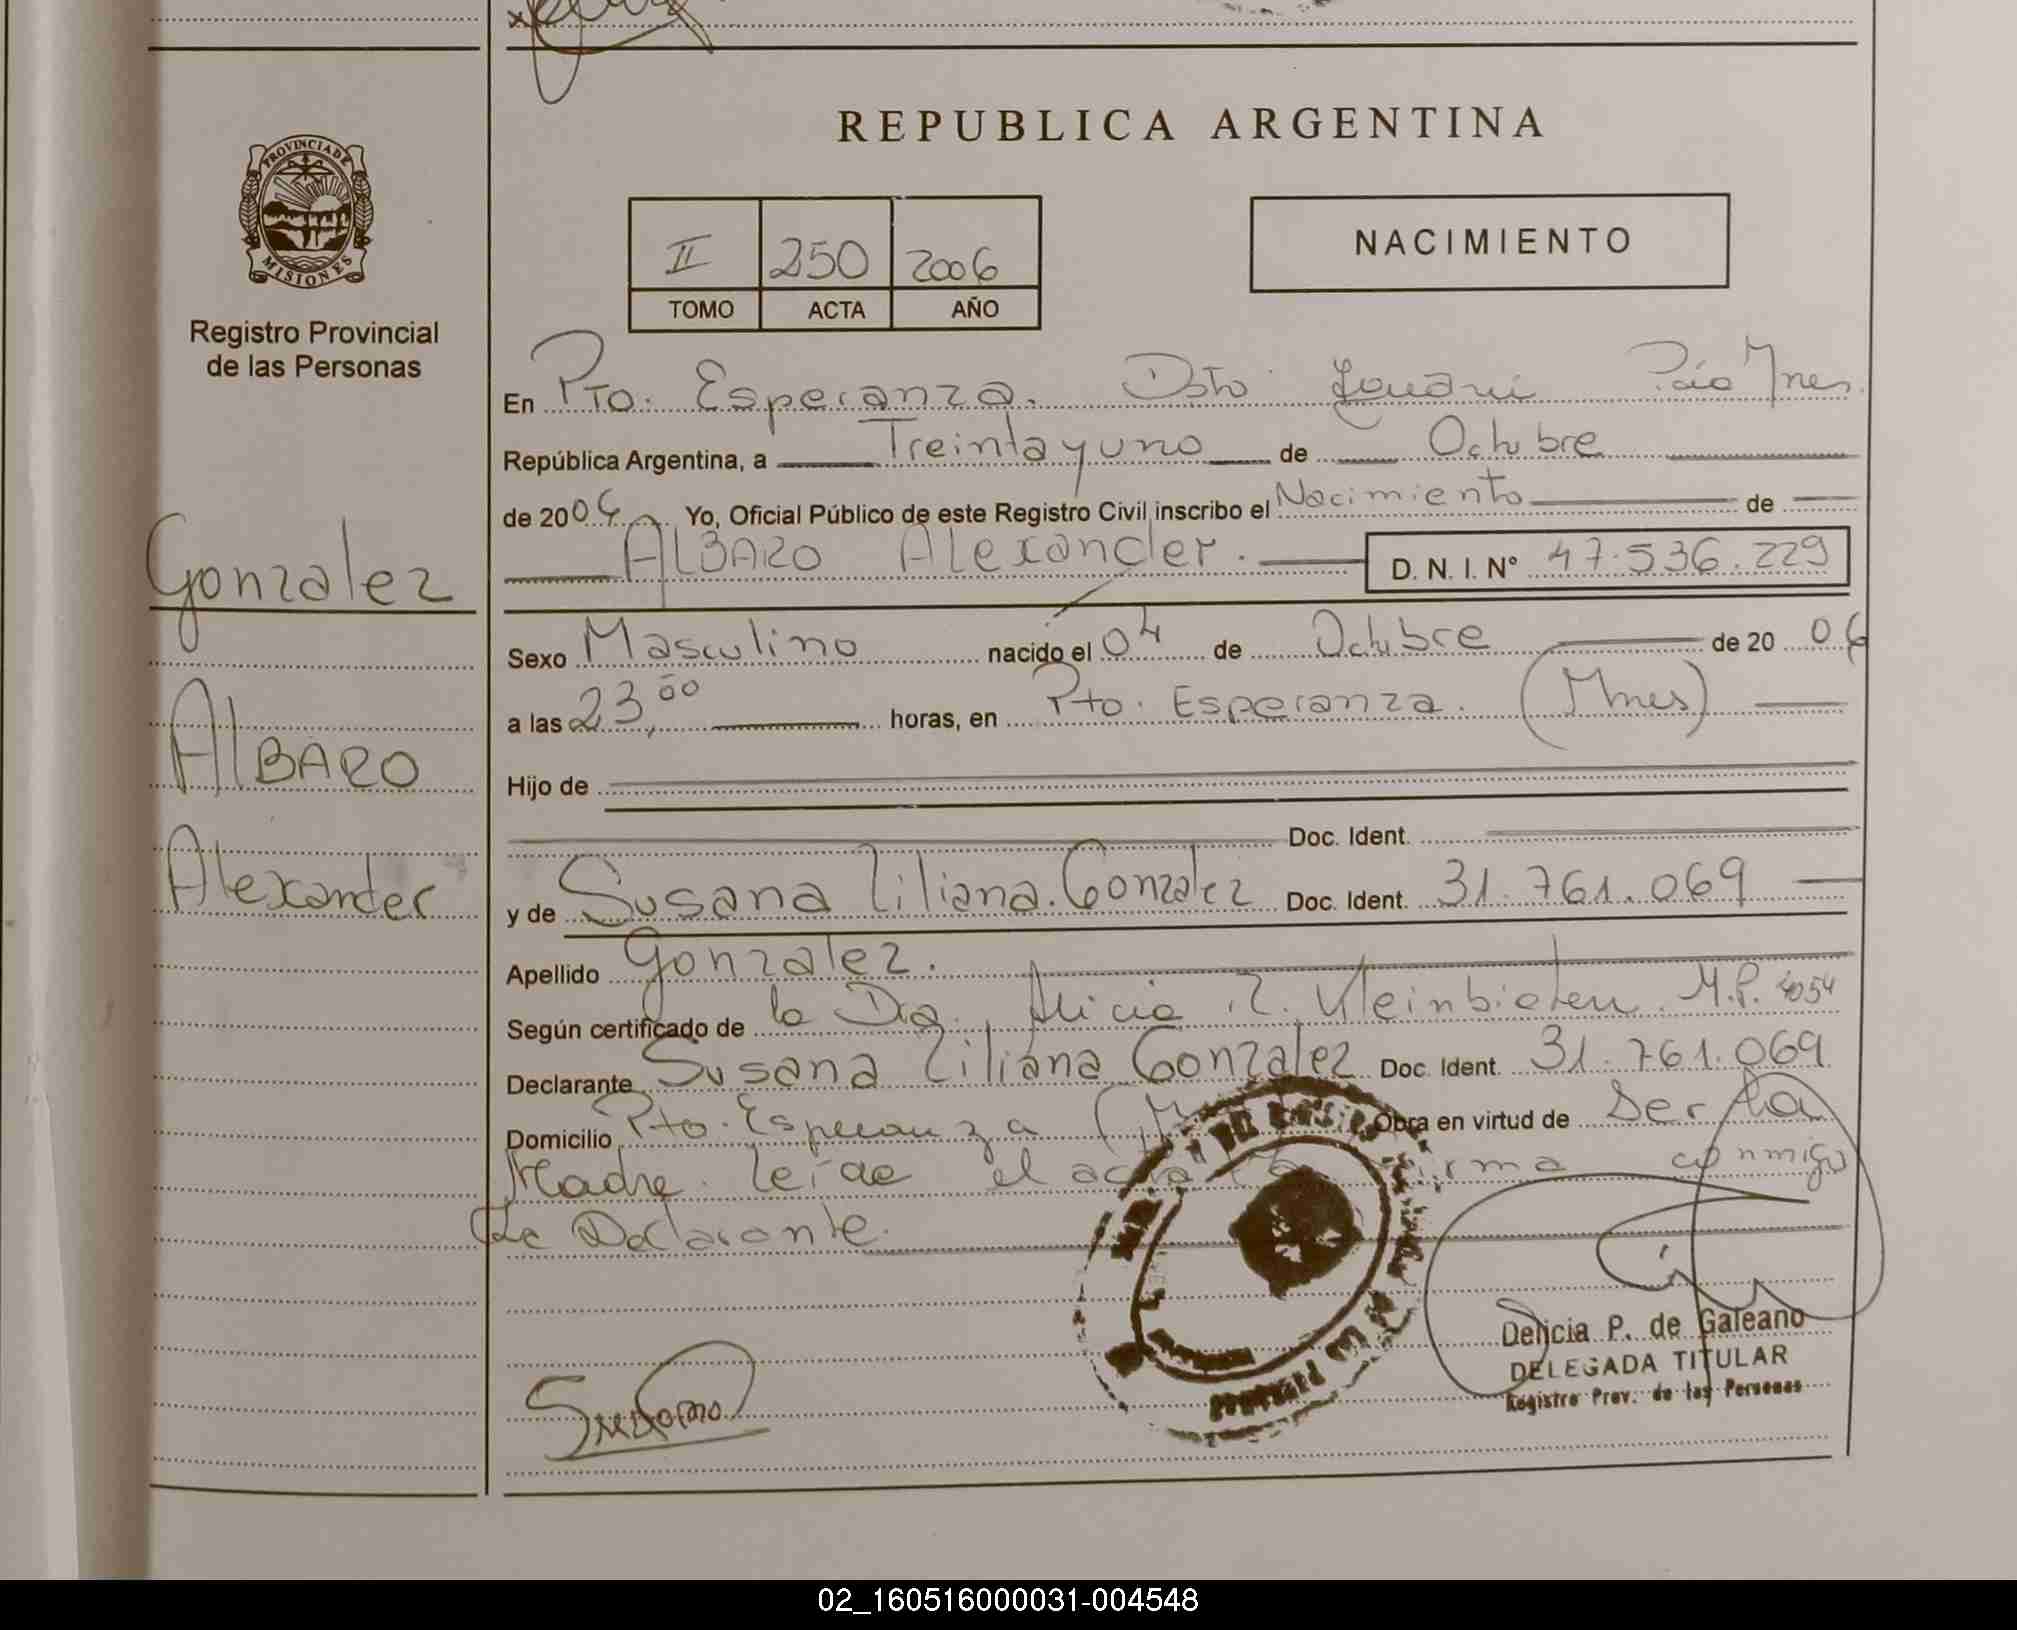 REPUBLICA ARGENTINA
PROVINCIA DE MISIONES
Registro Provincial
de las Personas
II 250 2006
TOMO ACTA AÑO
NACIMIENTO
En Pto. Esperanza. Dsto Iguazú Pcia Mnes.
República Argentina, a Treinta y uno de Octubre
de 2006 Yo, Oficial Público de este Registro Civil inscribo el Nacimiento de
ALBARO Alexander. D. N. I. N° 47.536.229
Gonzalez
ALBARO
Alexander
Sexo Masculino nacido el 04 de Octubre de 20 06
a las 23,00 horas, en Pto. Esperanza. (Mnes)
Hijo de
Doc. Ident.
y de Susana Liliana Gonzalez Doc. Ident. 31.761.069
Apellido Gonzalez.
Según certificado de la Dra. Alicia R. M.P. 4054
Declarante Susana Liliana Gonzalez Doc. Ident. 31.761.069
Domicilio Pto. Esperanza Obra en virtud de Ser la
Madre. leída el acta firma conmigo
La Declarante.
Delicia P. de Galeano
DELEGADA TITULAR
Registro Prov. de las Personas
02_160516000031-004548